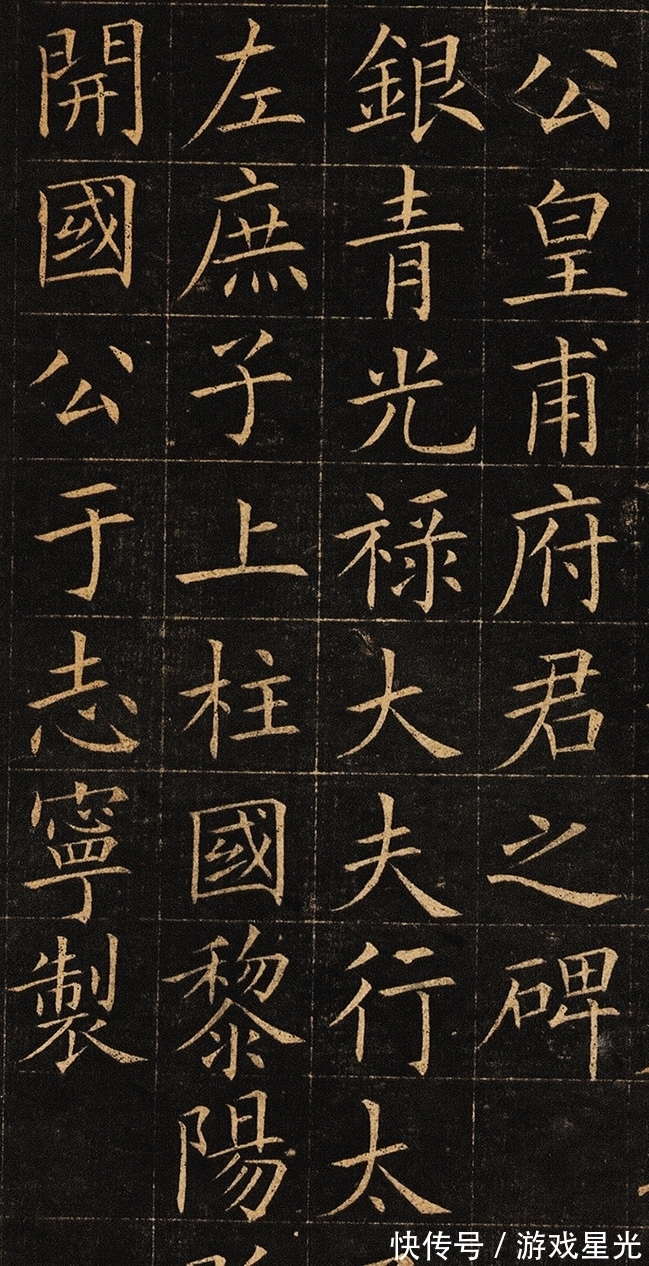 公皇甫府君之碑
銀青光祿大夫行太
左庶子上柱國黎陽
開國公于志寧製
快传号 / 游戏星光